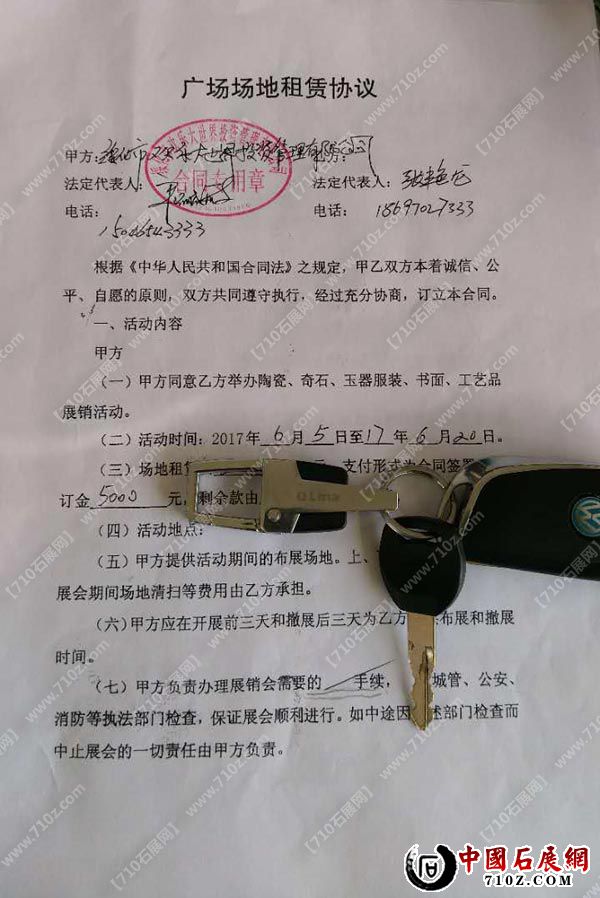 广场场地租赁协议
甲方：
法定代表人：
法定代表人：
电话：15046543333
电话：18697027333
根据《中华人民共和国合同法》之规定，甲乙双方本着诚信、公
平、自愿的原则，双方共同遵守执行，经过充分协商，订立本合同。
一、活动内容
甲方
（一）甲方同意乙方举办陶瓷、奇石、玉器服装、书面、工艺品
展销活动。
（二）活动时间：2017年6月5日至17年6月20日。
（三）场地租 支付形式为合同签
订金5000元，剩余款由
（四）活动地点：
（五）甲方提供活动期间的布展场地。上、
展会期间场地清扫等费用由乙方承担。
（六）甲方应在开展前三天和撤展后三天为乙方 布展和撤展
时间。
（七）甲方负责办理展销会需要的 手续， 城管、公安、
消防等执法部门检查，保证展会顺利进行。如中途因 述部门检查而
中止展会的一切责任由甲方负责。
合同专用章
中國石展網
710z.com
【710石展网】
www.710z.com